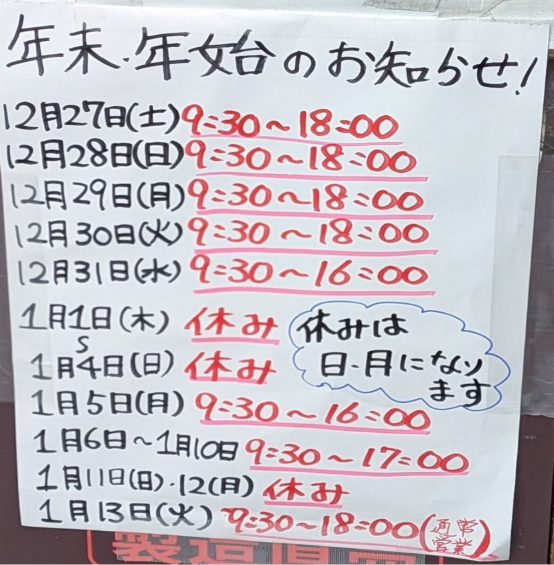 年末・年始のお知らせ!
12月27日(土)9:30〜18:00
12月28日(日)9:30〜18:00
12月29日(月)9:30〜18:00
12月30日(火)9:30〜18:00
12月31日(水)9:30〜16:00
1月1日(木)休み
S
1月4日(日)休み
休みは
日・月になり
ます
1月5日(月)9:30〜16:00
1月6日〜1月10日9:30〜17:00
1月11日(日)・12(月)休み
1月13日(火)9:30〜18:00(通常
営業)
製造直売